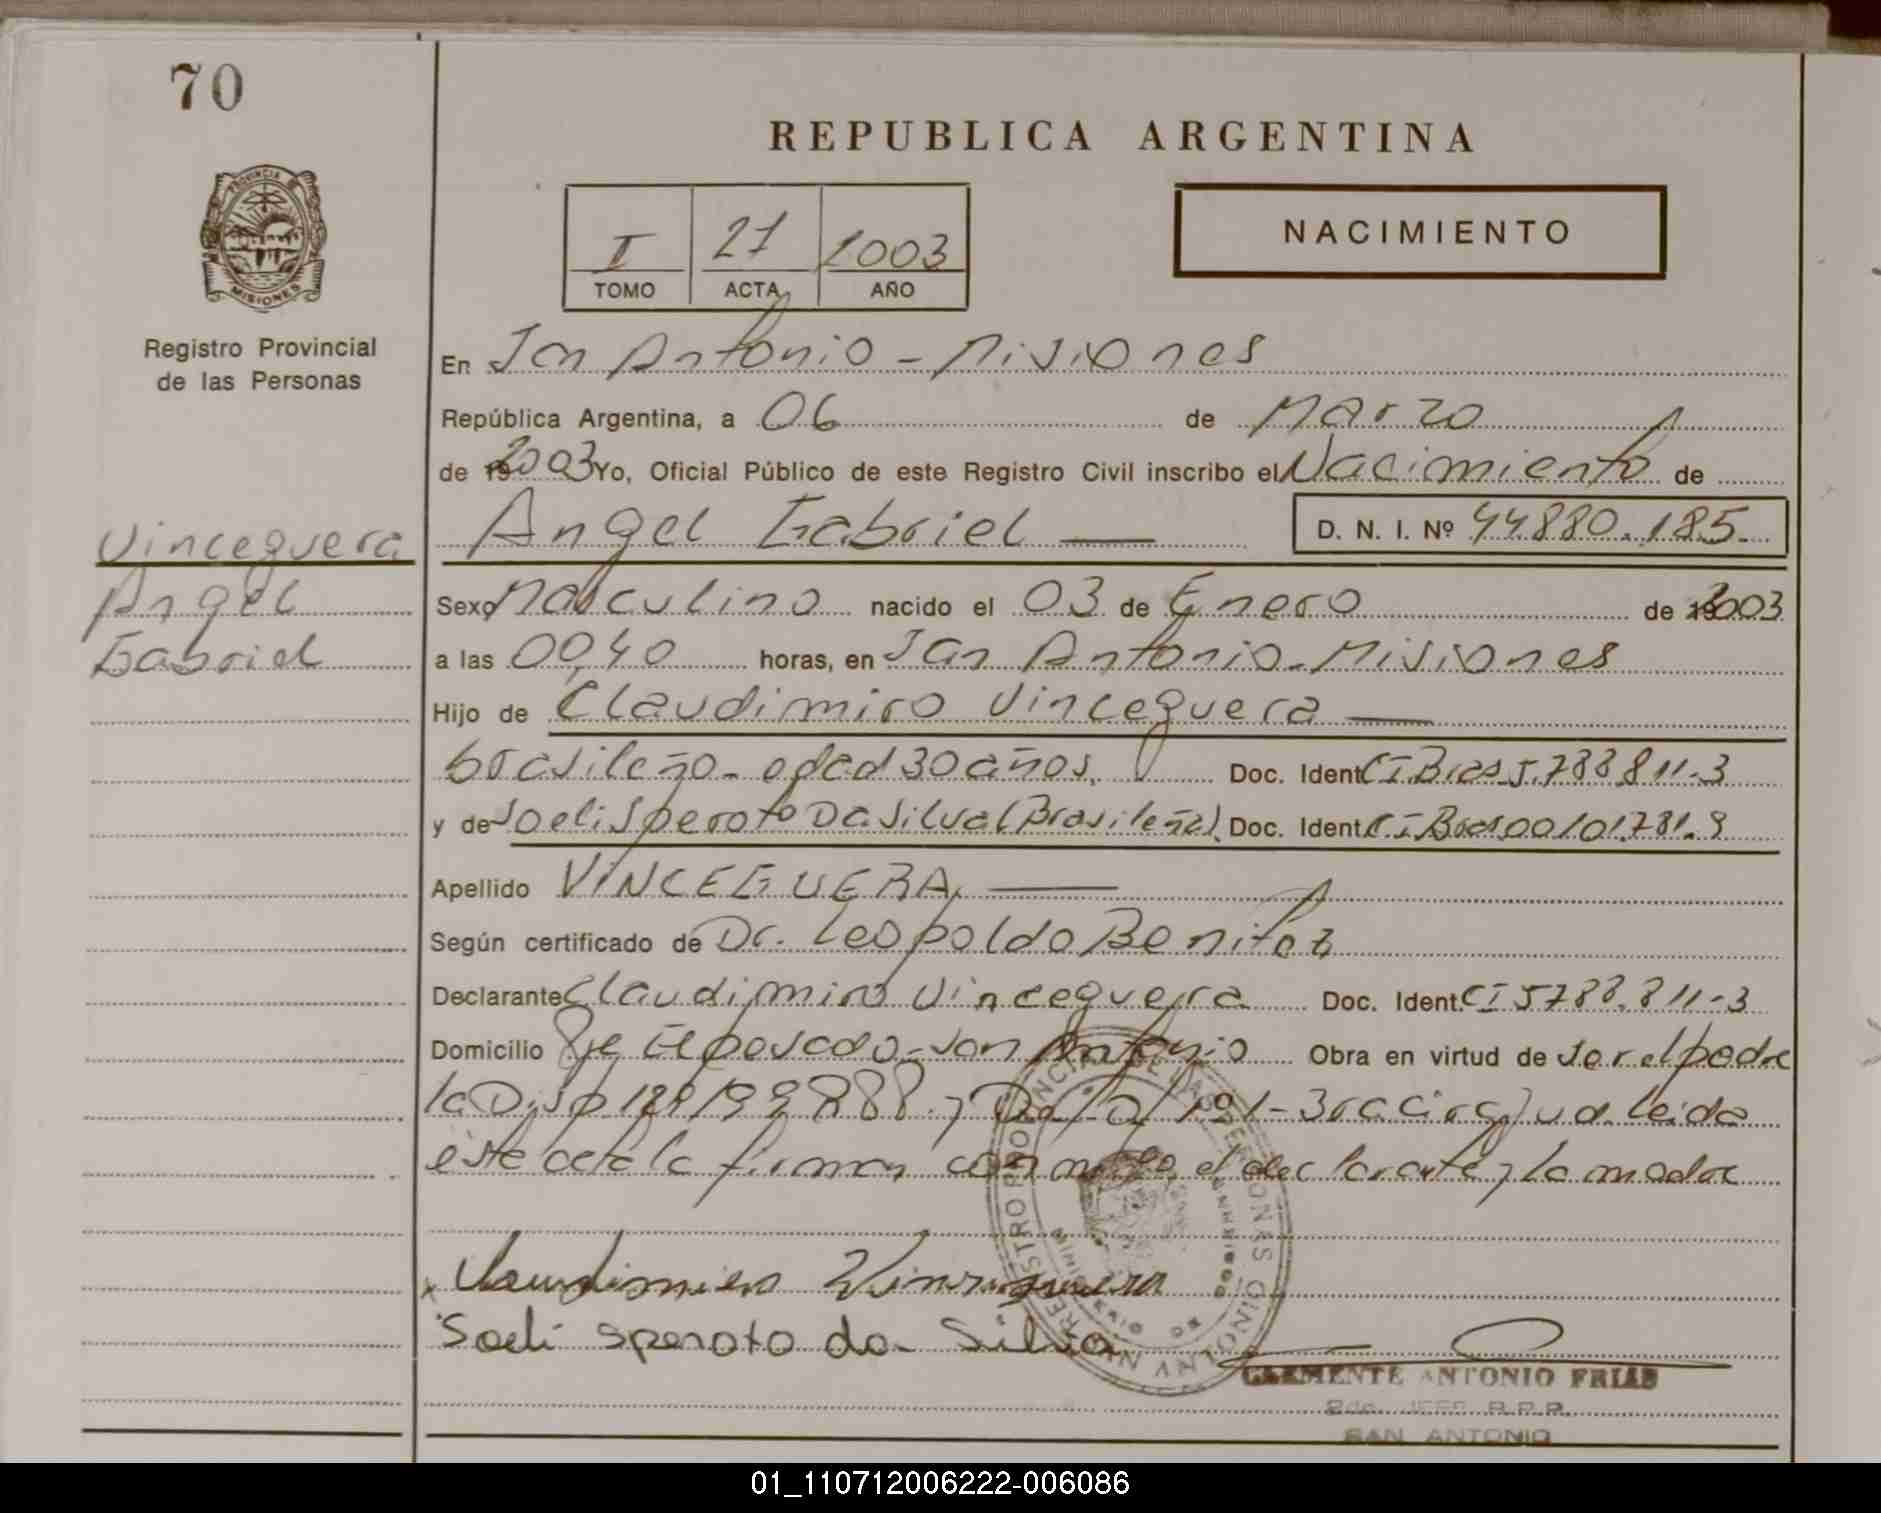 70
REPUBLICA ARGENTINA
I 21 2003
TOMO ACTA AÑO
NACIMIENTO
PROVINCIA DE MISIONES
Registro Provincial
de las Personas
En San Antonio - Misiones
República Argentina, a 06 de Marzo
de 2003 Yo, Oficial Público de este Registro Civil inscribo el Nacimiento de
Angel Gabriel D. N. I. Nº 44.880.185
Vinceguera
Angel
Gabriel
Sexo Masculino nacido el 03 de Enero de 2003
a las 00,40 horas, en San Antonio - Misiones
Hijo de Claudimiro Vinceguera
brasileño - edad 30 años. Doc. Ident. CI Bras 5.788.811-3
y de Soeli Speroto Da Silva (Brasileña) Doc. Ident. C.I. Bras 00101.781.9
Apellido VINCEGUERA
Según certificado de Dr. Leopoldo Benitez
Declarante Claudimiro Vinceguera Doc. Ident. CI 5788.811-3
Domicilio Pje El Pescado - San Antonio Obra en virtud de ser el padre
la Disp
este acta la firman conmigo el declarante y la madre
Soeli Speroto da Silva
REGISTRO PROVINCIAL DE LAS PERSONAS
SAN ANTONIO
CLEMENTE ANTONIO FRIAS
2do. JEFE R.P.P.
SAN ANTONIO
01_110712006222-006086